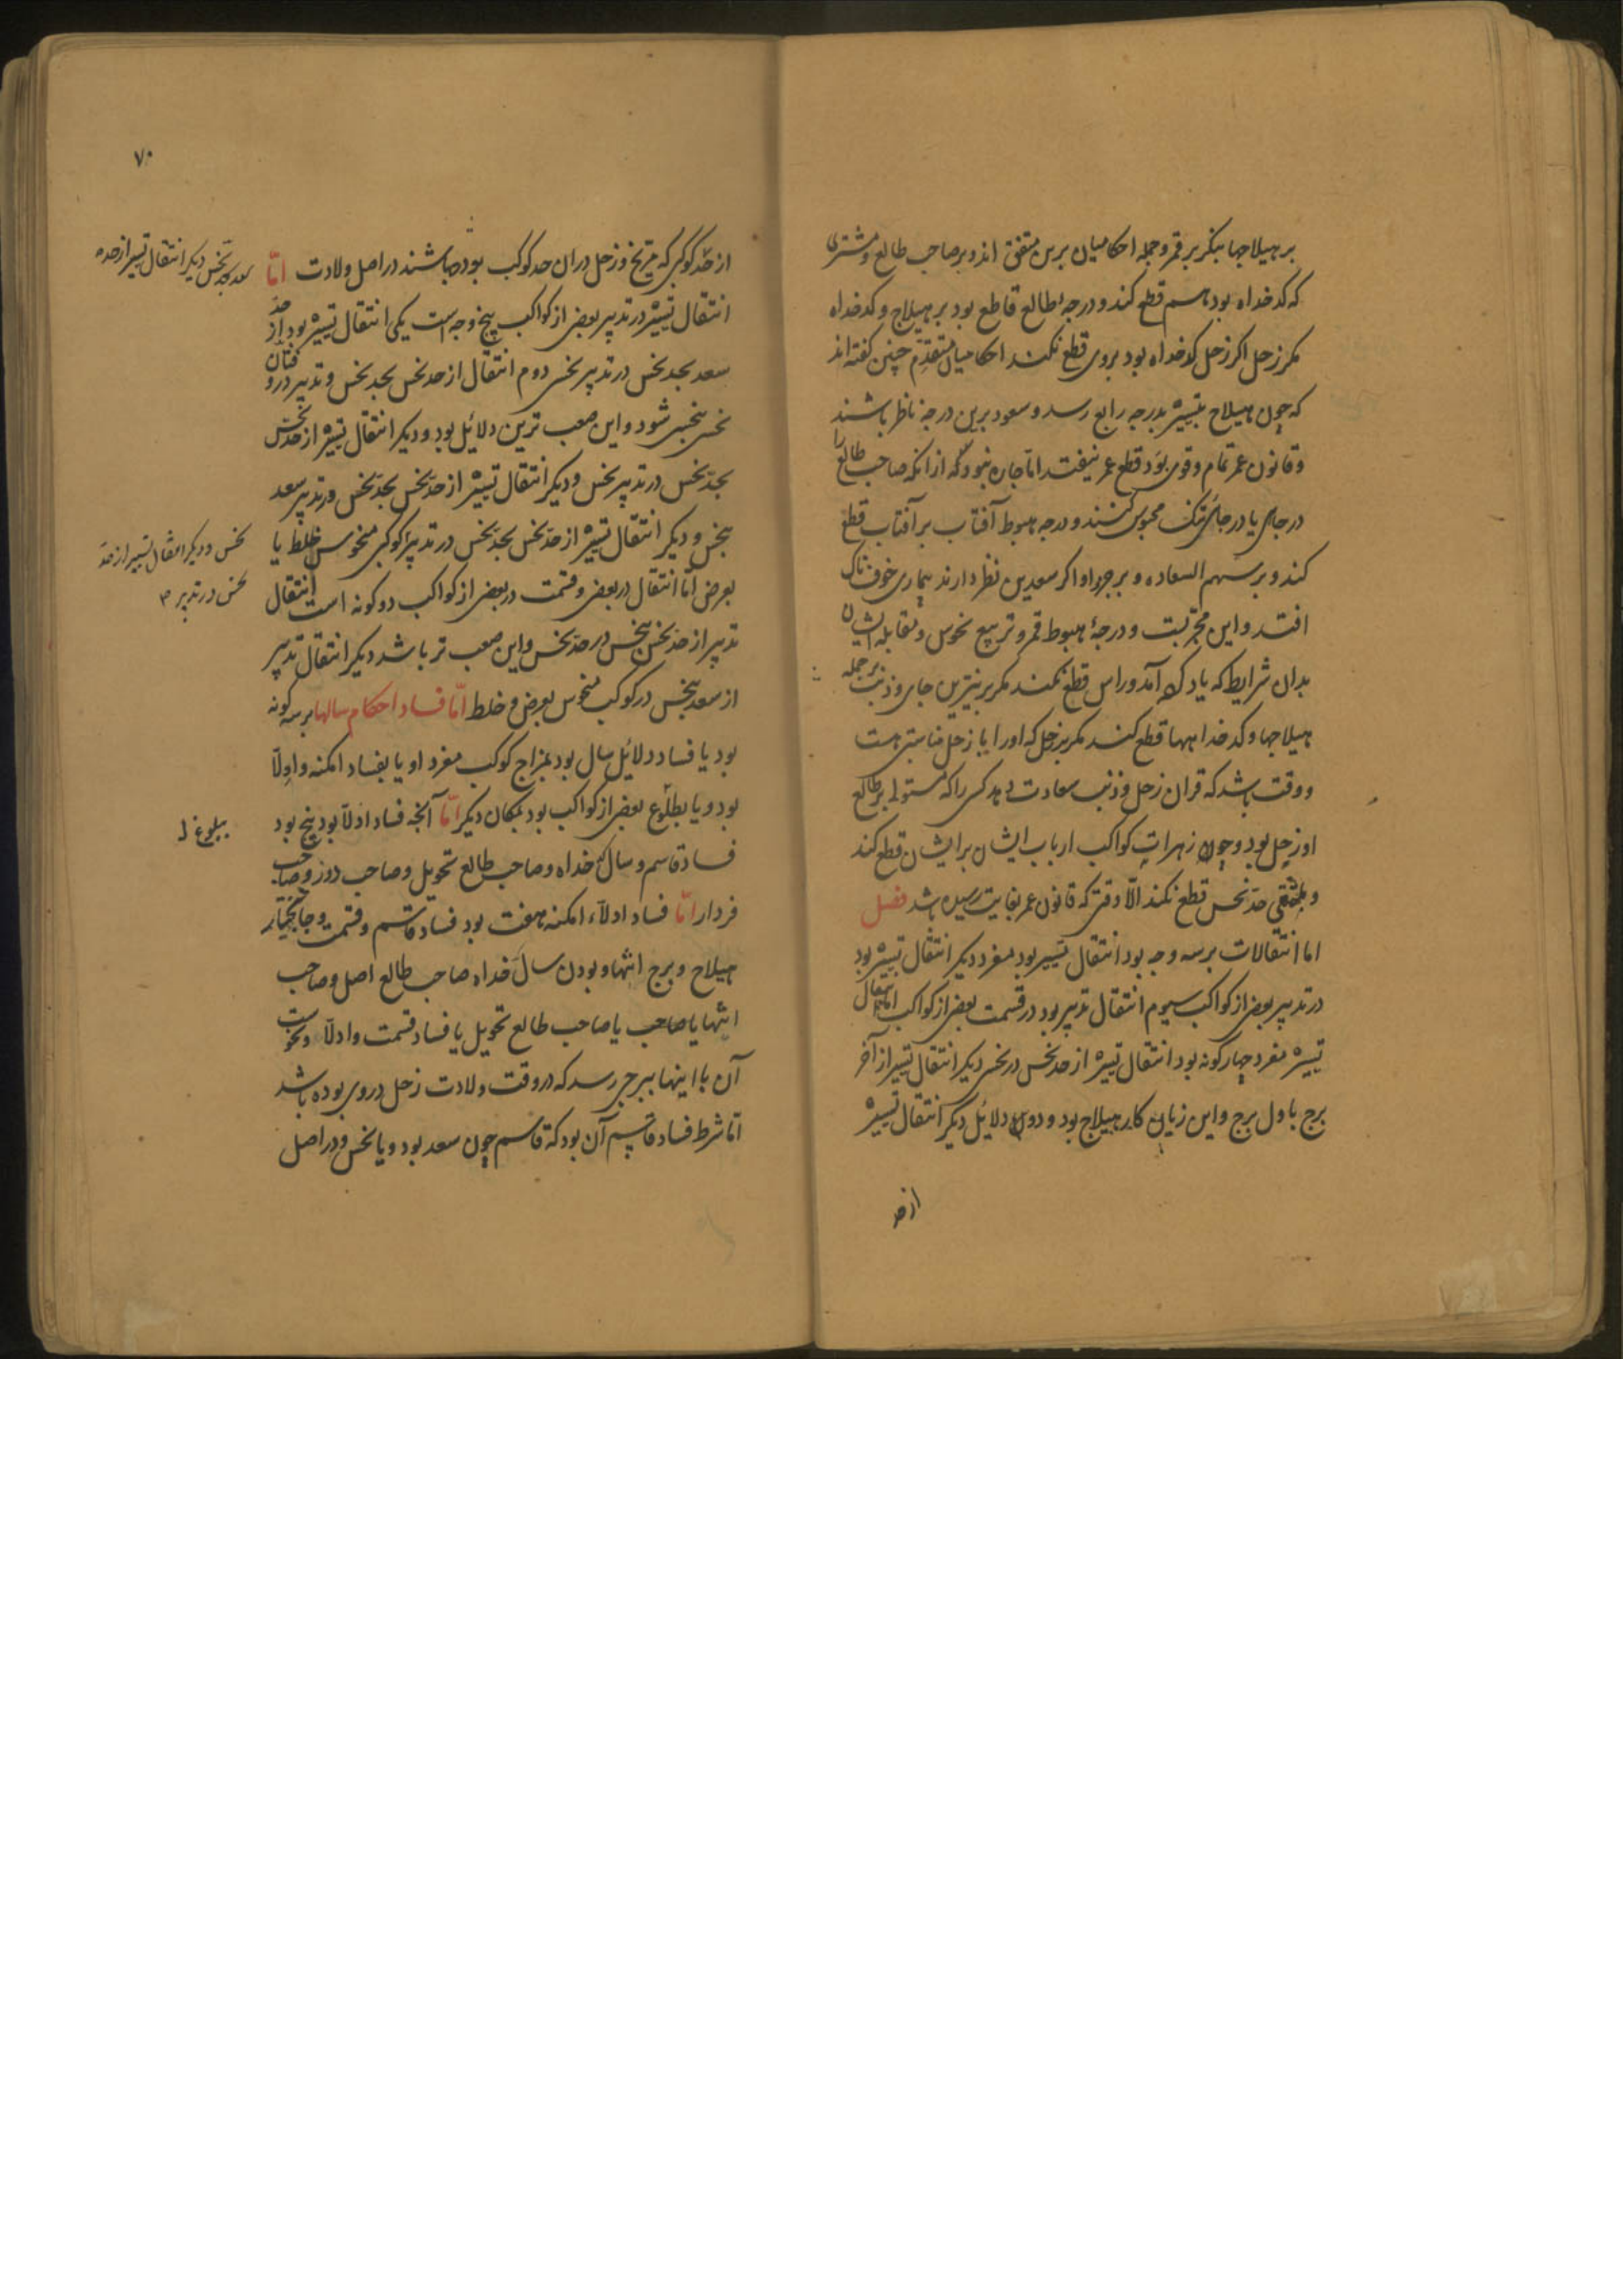 بر هیلاجها بنکر بر قمر و جمله احکامیان برین متفق اند و بر صاحب طالع و مشتری
که کدخداه بود هم قطع کند و درجه طالع قاطع بود بر هیلاج و کدخداه
مکر زحل اکر زحل کدخداه بود بروی قطع نکند احکامیان متقدّم چنین کفته اند
که چون هیلاج بتسییر بدرجه رابع رسد و سعود برین درجه ناظر باشند
و قانون عمر تمام و قوی بود قطع عمر نیفتد اما جاره نبود که از انکه صاحب طالع را
در جاهی یا در جای تنک محبوس کنند و درجه هبوط آفتاب بر آفتاب قطع
کند و بر سهم السعاده و بر جزو او اکر سعدین نظر دارند بیماری خوفناک
افتد و این مجرّبست و درجهٔ هبوط قمر و تربیع نحوس و مقابله ایشان
بدان شرایط که یاد کرده آمد و راس قطع نکند مکر بر نیّرین جای و ذنب بر جمله
هیلاجها و کدخداهها قطع کند مکر بر زحل که اورا با زحل مناسبتی هست
و وقت باشد که قران زحل و ذنب سعادت دهد کسی را که مستولی بر طالع
او زحل بود و چون زهرات کواکب ارباب ایشان بر ایشان قطع کند
و حدّ نحس قطع نکند الّا وقتی که قانون عمر بغایت رسیده باشد فصل
اما انتقالات بر سه وجه بود انتقال تسییر بود مفرد دیکر انتقال تسییر بود
در تدبیر بعضی از کواکب سیوم انتقال تدبیر بود در قسمت بعضی از کواکب اما انتقال
تسییر مفرد چهار کونه بود انتقال تسییر از حد نحس در نحس دیکر انتقال تسییر از آخر
برج باول برج و این زیان کار هیلاج بود و دون دلائل دیکر انتقال تسییر
از حد
۷۰
از حدّ کوکبی که مریخ و زحل در ان حد کوکب بوده باشند در اصل ولادت امّا
سعد بحد نحس دیکر انتقال تسییر از حد
انتقال تسییر در تدبیر بعضی از کواکب پنج وجه است یکی انتقال تسییر بود از حدّ
سعد بحد نحس در تدبیر نحس دوم انتقال از حد نحس بحد نحس و تدبیر در و
نحس بنحس شود و این صعب ترین دلائل بود و دیکر انتقال تسییر از حد نحس
بحدّ نحس در تدبیر نحس و دیکر انتقال تسییر از حدّ نحس بحدّ نحس در تدبیر سعد
بنحس و دیکر انتقال تسییر از حدّ نحس بحدّ نحس در تدبیر کوکبی منحوس بخلط یا
نحس و دیکر انتقال تسییر از حدّ
نحس در تدبیر
بعرض امّا انتقال در بعضی و قسمت در بعضی از کواکب دو کونه است انتقال
تدبیر از حد نحس بنحس در حدّ نحس و این صعب تر باشد دیکر انتقال تدبیر
از سعد بنحس در کوکب منحوس بعرض و خلط امّا فساد احکام سالها بر سه کونه
بود یا فساد دلائل سال بود بمزاج کوکب مفرد او یا بفساد امکنه و ادلّا
بود و یا بطلوع بعضی از کواکب بود بمکان دیکر امّا آنچه فساد ادلّا بود پنج بود
فساد قاسم و سال خداه و صاحب طالع تحویل و صاحب دور و صاحب
فردار امّا فساد ادلاء امکنه هفت بود فساد قاسم و قسمت و جا بختار
هیلاج و برج انتها و بودن سال خداه صاحب طالع اصل و صاحب
انتها یا صاحب یا صاحب طالع تحویل یا فساد قسمت و ادلّا و نحوست
آن با اینها ببرجی رسد که در وقت ولادت زحل در وی بوده باشد
امّا شرط فساد قاسم آن بود که قاسم چون سعد بود و یا نحس و در اصل